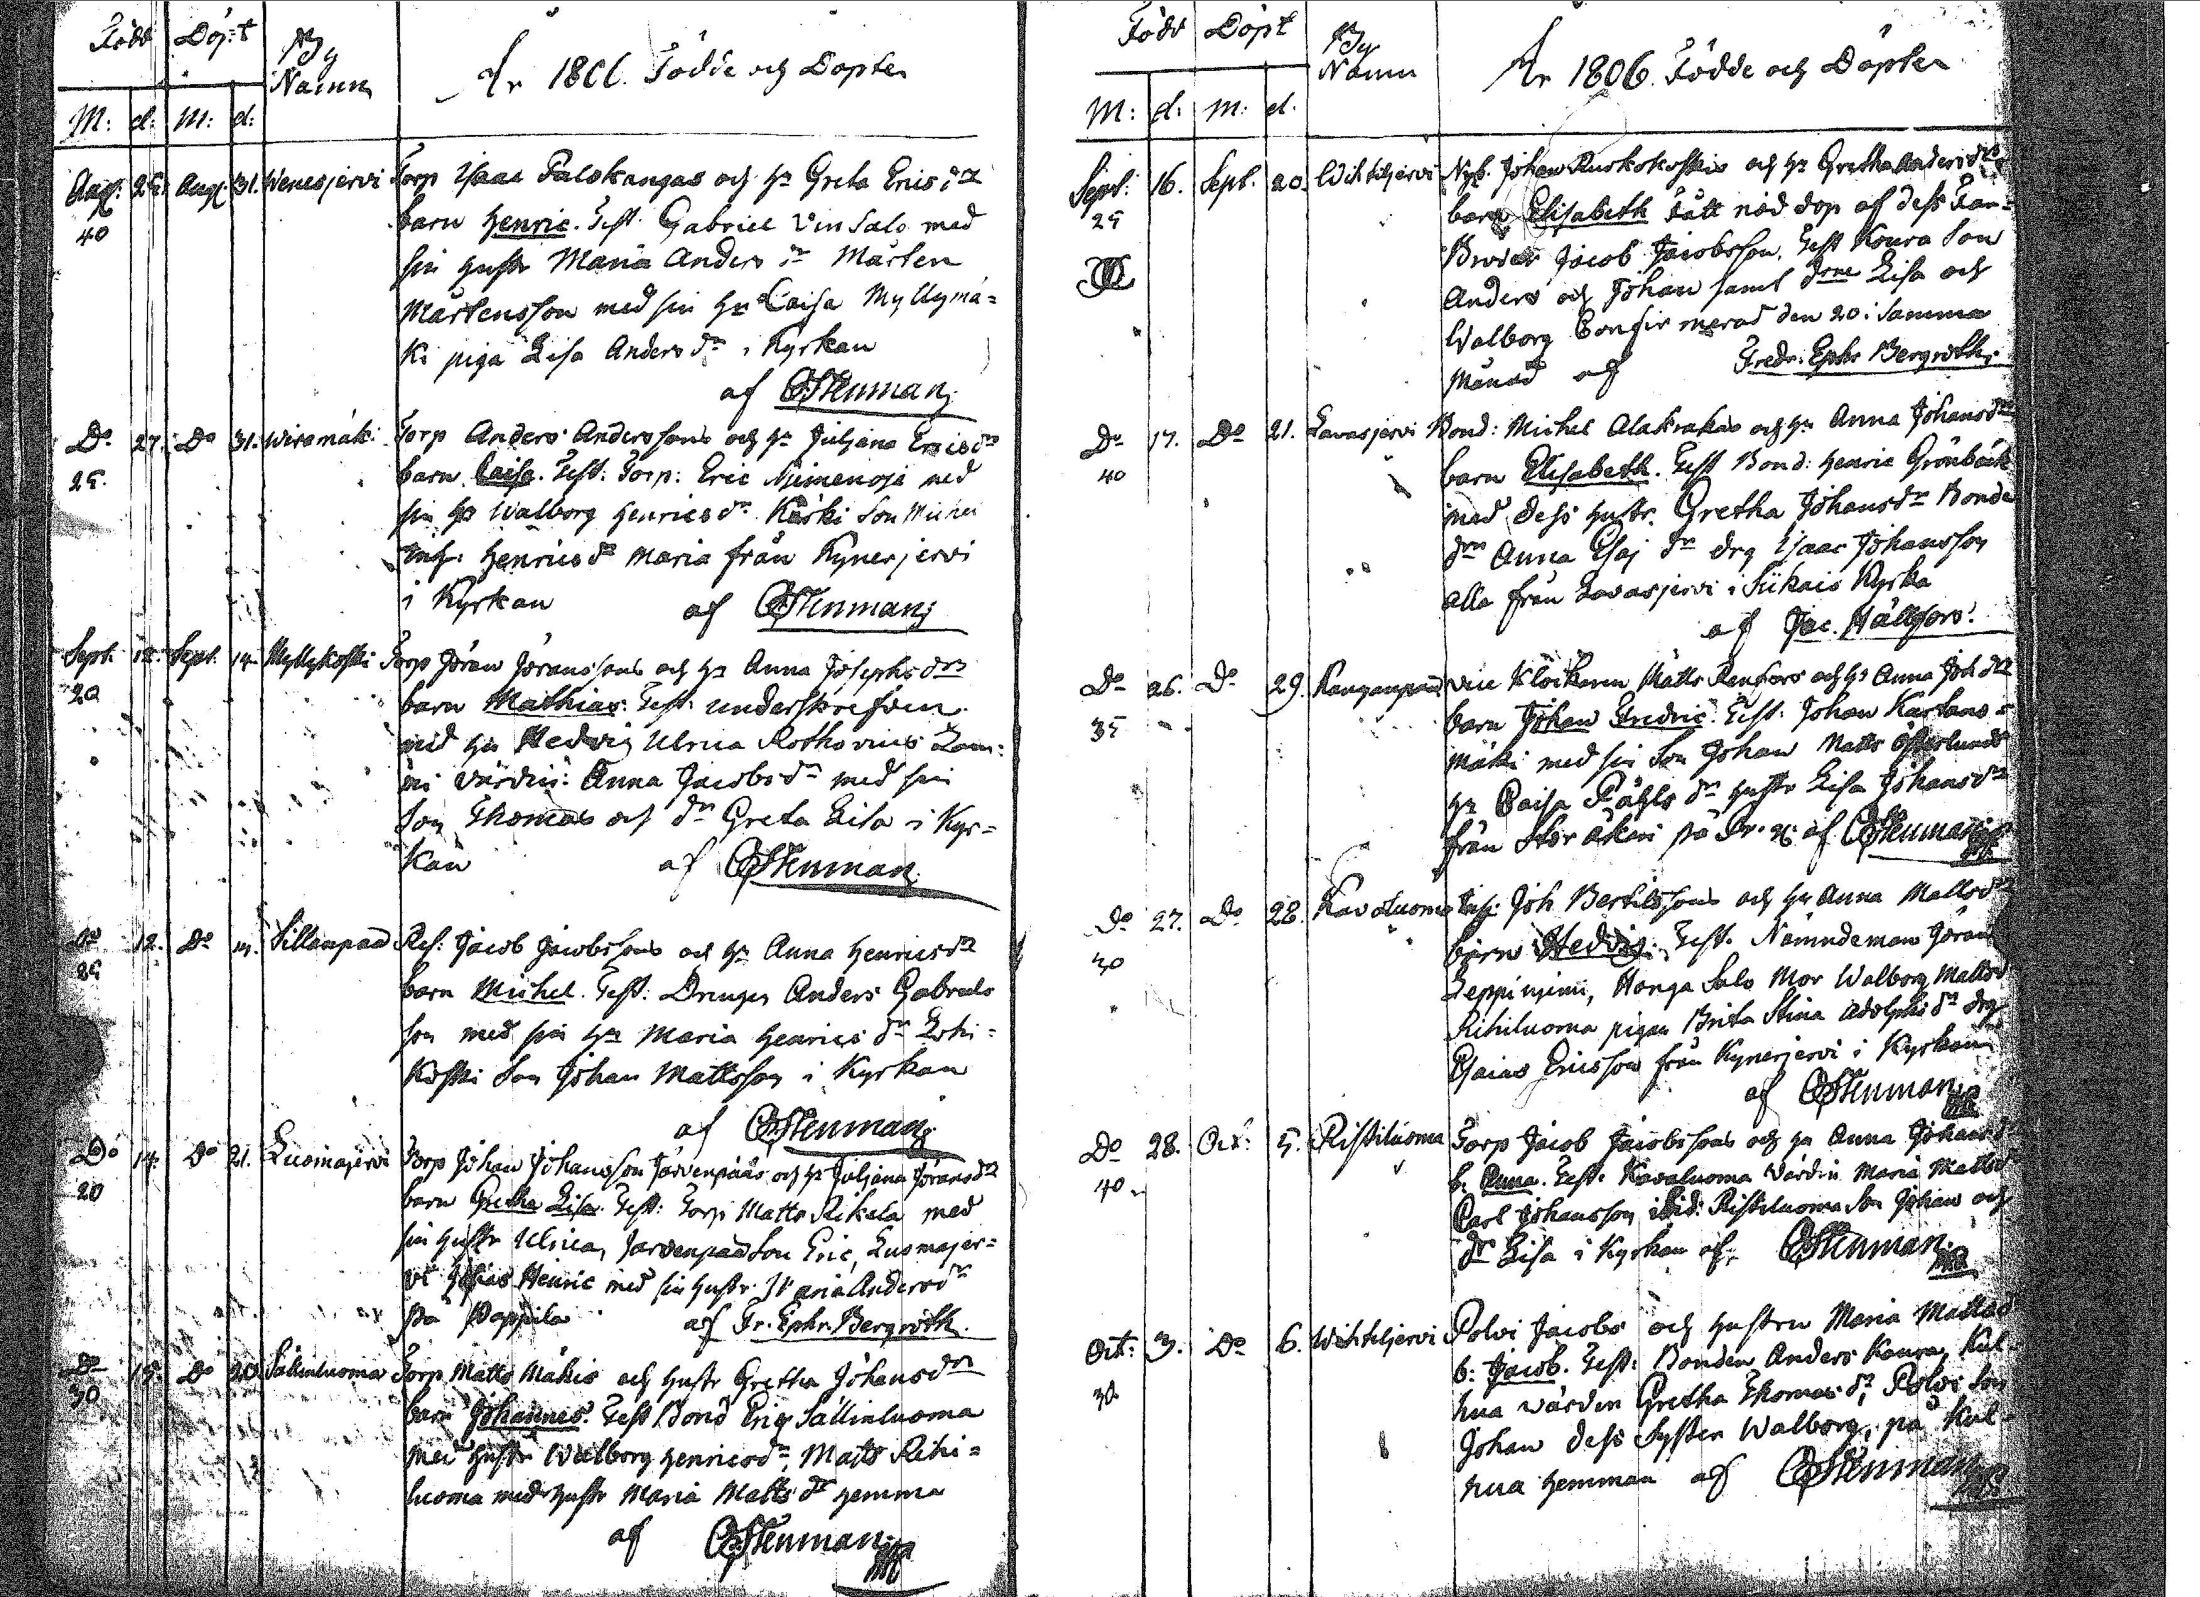 Född Döpt By Namn År 1806. Födde och Döpte
M: d: M: d:
Aug: 25. Aug: 31. Wenesjervi Torp Isaac Palokangas och H:r Greta Erics dr
40 barn Henric. Test. Gabriel Vinsalo med
sin hustr Maria Anders dr Mårten
Mårtensson med sin Hr Caisa Myllymä=
ki piga Lisa Anders dr i Kyrkan
af CStenman
Do 27. Do 31. Wiromäki Torp Anders Anderssons och Hr Juljana Erics dr
25. barn Caisa. Test: Torp: Eric Njimenoja med
sin Hr Walborg Henrics dr Koski Son Michel
Inh: Henrics dr Maria från Kynerjervi
i Kyrkan af CStenman
Sept. 12. Sept. 14. Myllykoski Torp Jöran Jöranssons och Hr Anna Josephs dr
20 barn Mathias. Test: underskrefven
med Hr Hedvig Ulrica Rothovius
Värdin: Anna Jacobs dr med sin
Son Thomas och dr Greta Lisa i Kyr=
kan af CStenman
Do 12. Do 14. Sillanpää Ref: Jacob Jacobssons och Hr Anna Henrics dr
25 barn Michel. Test: Drengen Anders Gabriels
son med sin Hr Maria Henrics dr Lohi=
koski Son Johan Mattsson i Kyrkan
af CStenman
Do 14. Do 21. Luomajervi Torp Johan Johansson Järvenpääs och Hr Juljana Jörans dr
20 barn Gretha Lisa. Test: Torp Matts Rikala med
sin hustr Ulrica, Jarvenpää Son Eric, Luomajer=
vi Henric med sin hustr Maria Anders dr
på Pappila af Fr. Ephr. Bergroth.
Do 15. Do 20. Sällinluoma Torp Matts Mäkis och hustr Gretha Johans dr
30 barn Johannes. Test Bond Eric Sällinluoma
med hustr Walborg Henrics dr, Matts Rihi=
luoma med hustr Maria Matts dr hemma
af CStenman
Född Döpt By Namn År 1806. Födde och Döpte
M: d: M: d:
Sept: 16. Sept. 20. Wihtiljervi Nyb. Johan Ruskokoskis och Hr Gretha Anders dr
25 barn Elisabeth fått nöd dop af dess Far=
Broder Jacob Jacobsson. Test Koura Son
Anders och Johan samt drne Lisa och
Walborg Confirmerad den 20 i samma
Månad af Fredr. Ephr Bergroth.
Do 17. Do 21. Lavasjervi Bond: Michel Alakrakas och Hr Anna Johans dr
40 barn Elisabeth. Test Bond: Henric Grönbäck
med dess hustr. Gretha Johans dr Bonde
drn Anna Esaj dr drg Isaac Johansson
alla från Lavasjervi i Siikais Kyrka
af Jac. Hällfors.
Do 26. Do 29. Kanganpää vice Klockaren Matts Renfors och Hr Anna Joh dr
35 barn Johan Fredric. Test: Johan Kartano=
mäki med sin Son Johan Matts Österlunds
Hr Caisa Påhls dr hustr Lisa Johans dr
från af CStenman
Do 27. Do 28. Kavoluoma Inh: Joh Bertilssons och Hr Anna Matts dr
40 barn Hedvig. Test. Nämndeman Jöran
Leppiniemi, Honga Salo Mor Walborg Matts dr
Rihiluoma pigan Brita Stina Adolphs dr drg
Esaias Ericsson från Kynerjervi i Kyrkan
af CStenman
Do 28. Oct: 5. Ristiluoma Torp Jacob Jacobssons och Hr Anna Johans dr
40 b. Anna. Test. Kavaluoma Värdin Maria Matts dr
Carl Johansson ibid: Ristiluoma Son Johan och
dr Lisa i Kyrkan af CStenman
Oct: 3. Do 6. Wihtiljervi Polvi Jacobs och hustru Maria Matts dr
30 b: Jacob. Test: Bonden Anders Koura, Kul=
hua värden Gretha Thomas dr, Polvi Son
Johan dess Syster Walborg, på Kul=
hua Hemman af CStenman